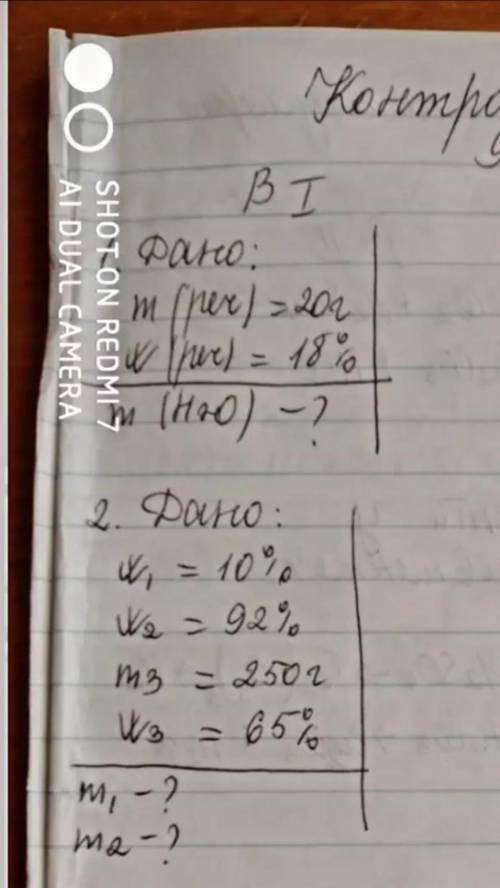 Контро
В I
1. Дано:
m (реч) = 20г
w (реч) = 18%
m (H2O) - ?
2. Дано:
w1 = 10%
w2 = 92%
m3 = 250г
w3 = 65%
m1 - ?
m2 - ?
SHOT ON REDMI 7
AI DUAL CAMERA